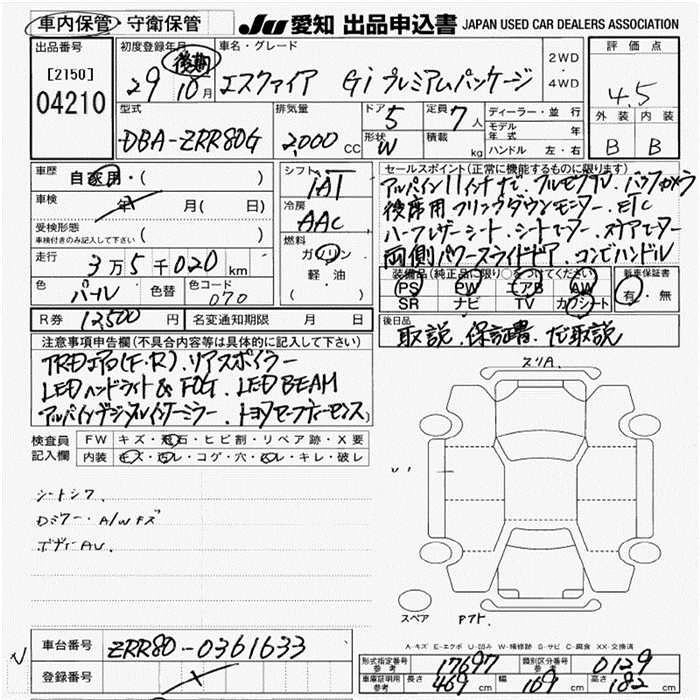 車内保管・守衛保管 JU 愛知 出品申込書 JAPAN USED CAR DEALERS ASSOCIATION
出品番号 初度登録年月 車名・グレード 評価点
[2150] 後期 2WD・4WD
04210 29 10月 エスクァイア Gi プレミアムパッケージ 4.5
型式 排気量 ドア 5 定員 7人 ディーラー・並行 外装 内装
モデル年式 年
DBA-ZRR80G 2,000 CC 形状 W 積載 kg ハンドル 左・右 B B
車歴 自家用・( ) シフト IAT セールスポイント(正常に機能するものに限ります)
アルパイン11インチナビ、フルセグTV、バックカメラ
車検 年 月( 日) 冷房 AAC 後席用フリップダウンモニター、ETC
受検形態 ( ) ハーフレザーシート、シートヒーター、
車検付きのみ記入して下さい
燃料 ガソリン 両側パワースライドドア、コンビハンドル
走行 3万5千020km 軽油 ( ) 装備品(純正品に限り○をつけてください) 新車保証書
PS PW エアB AW 有・無
色 パール 色替 色コード 070 SR ナビ TV カワシート
R券 12,500円 名変通知期限 月 日 後日品
取説、保証書、ナビ取説
注意事項申告欄(不具合内容等は具体的に記入して下さい)
TRDエアロ(F・R)、リアスポイラー スリA.
LEDハンドライト & FOG、LED BEAM
アルパインデジタルインナーミラー、トヨタセーフティーセンス
検査員記入欄 FW キズ・飛石・ヒビ割・リペア跡・X要
内装 キズ・汚レ・コゲ・穴・ヌレ・キレ・破レ
シートシワ、
Dミラー・A/Wキズ
ボディAU、
スペア Pアト.
A-キズ E-エクボ U-凹み W-補修跡 S-サビ C-腐食 XX-交換済
車台番号 ZRR80-0361633
型式指定番号 参考 17697 類別区分番号 参考 0129
登録番号
車庫証明用 参考 長さ 469 cm 幅 169 cm 高さ 182 cm